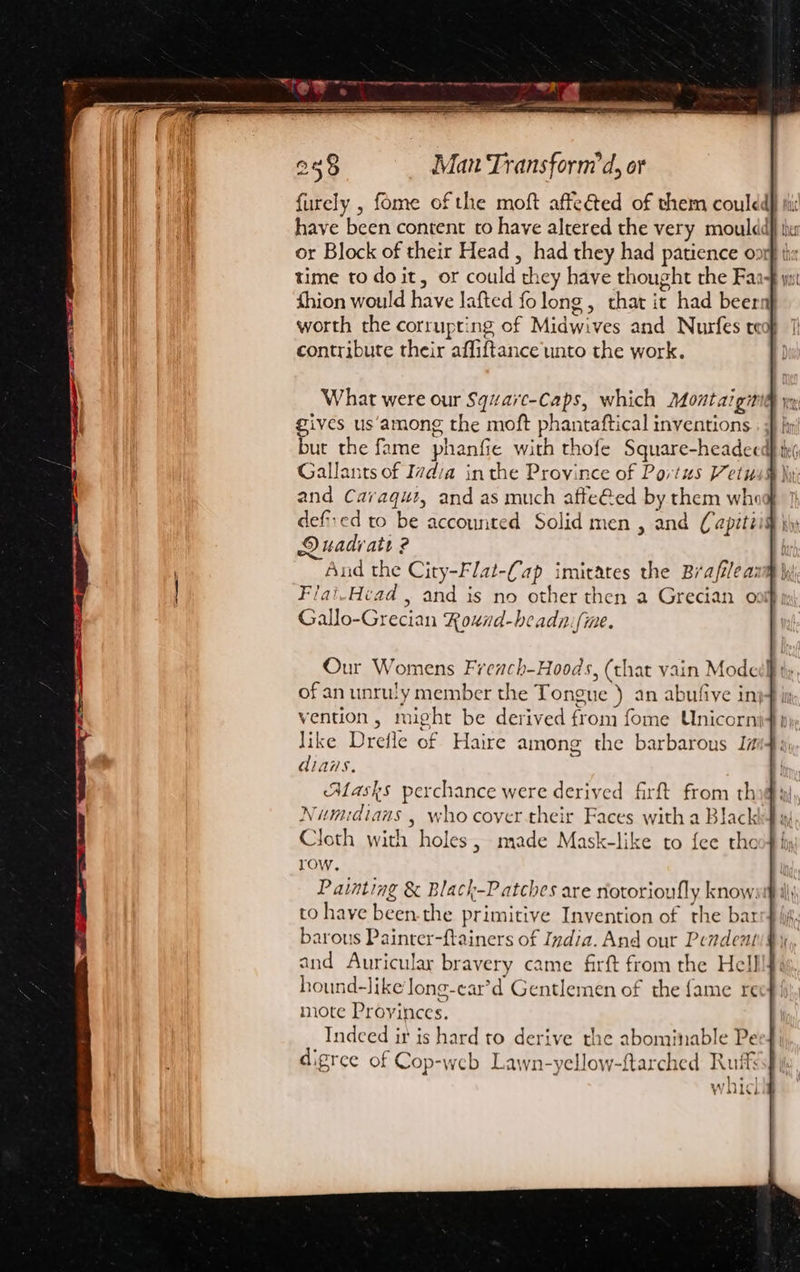 258 Man Transform'd, or
ſurely , ſome of the moſt affected of them could
have been content to have altered the very mould
or Block of their Head , had they had patience or
time to do it, or could they have thought the Fa-
ſhion would have laſted ſo long , that it had been
worth the corrupting of Midwives and Nurſes to
contribute their aſſiſtance unto the work.
What were our Square-Caps, which Montaigne
gives us among the moſt phantaſtical inventions :
but the ſame phanſie with thoſe Square-headed
Gallants of India in the Province of Portus Vetus
and Caraqui, and as much affected by them who
deſired to be accounted Solid men , and Capitis
Quadrati ?
And the City-Flat-Cap imitates the Braſilean
Flat-Head , and is no other then a Grecian or
Gallo-Grecian Round-headniſme.
Our Womens French-Hoods, (that vain Model
of an unruly member the Tongue ) an abuſive in-
vention , might be derived from ſome Unicorn-
like Dreſſe of Haire among the barbarous In-
dians.
Masks perchance were derived firſt from th
Numidians , who cover their Faces with a Black
Cloth with holes , made Mask-like to ſee tho-
row.
Painting & Black-Patches are notoriouſly known
to have been the primitive Invention of the bar-
barous Painter-ſtainers of India. And our Pendent
and Auricular bravery came firſt from the Hell-
hound-like long-ear'd Gentlemen of the ſame re-
mote Provinces.
Indeed it is hard to derive the abominable Pe-
digree of Cop-web Lawn-yellow-ſtarched Ruffs
which